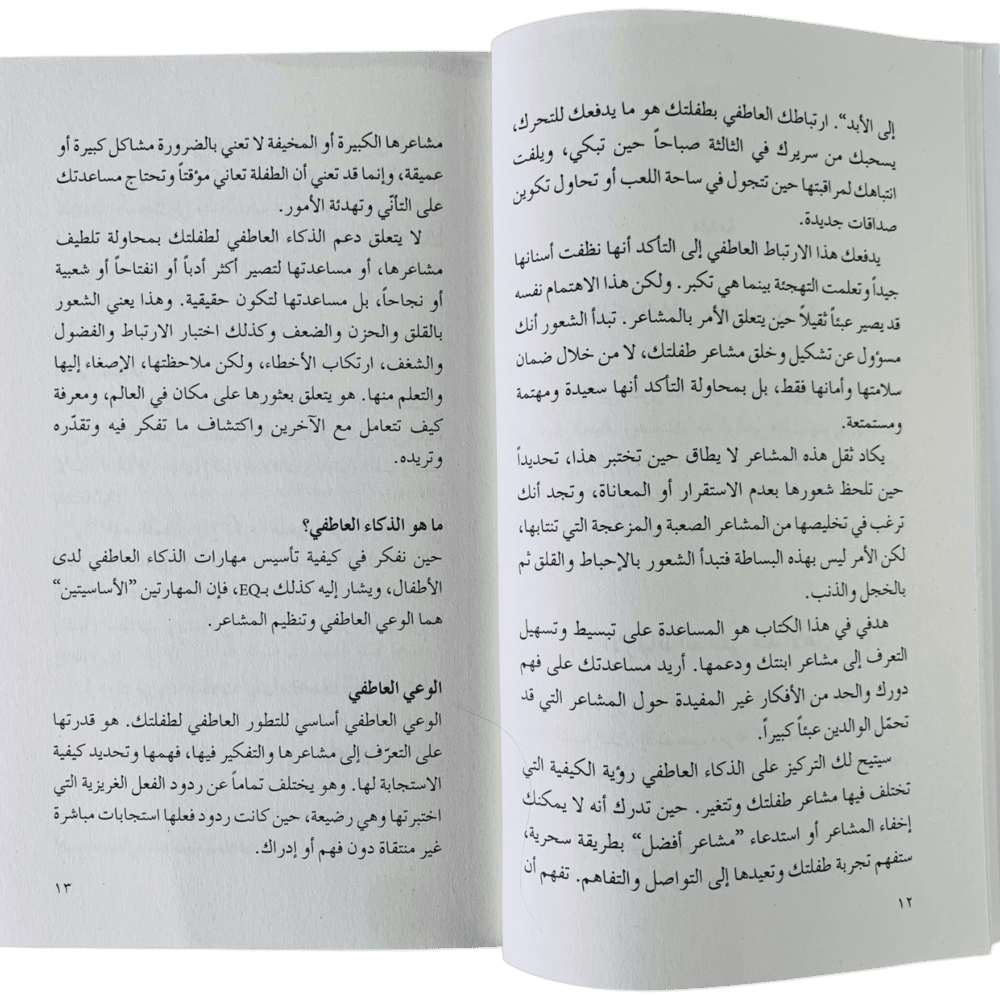 إلى الأبد“. ارتباطك العاطفي بطفلتك هو ما يدفعك للتحرك،
يسحبك من سريرك في الثالثة صباحاً حين تبكي، ويلفت
انتباهك لمراقبتها حين تتجول في ساحة اللعب أو تحاول تكوين
صداقات جديدة.
يدفعك هذا الارتباط العاطفي إلى التأكد أنها نظفت أسنانها
جيداً وتعلمت التهجئة بينما هي تكبر. ولكن هذا الاهتمام نفسه
قد يصير عبئاً ثقيلاً حين يتعلق الأمر بالمشاعر. تبدأ الشعور أنك
مسؤول عن تشكيل وخلق مشاعر طفلتك، لا من خلال ضمان
سلامتها وأمانها فقط، بل بمحاولة التأكد أنها سعيدة ومهتمة
ومستمتعة.
يكاد ثقل هذه المشاعر لا يطاق حين تختبر هذا، تحديداً
حين تلحظ شعورها بعدم الاستقرار أو المعاناة، وتجد أنك
ترغب في تخليصها من المشاعر الصعبة والمزعجة التي تنتابها،
لكن الأمر ليس بهذه البساطة فتبدأ الشعور بالإحباط والقلق ثم
بالخجل والذنب.
هدفي في هذا الكتاب هو المساعدة على تبسيط وتسهيل
التعرف إلى مشاعر ابنتك ودعمها. أريد مساعدتك على فهم
دورك والحد من الأفكار غير المفيدة حول المشاعر التي قد
تحمّل الوالدين عبئاً كبيراً.
سيتيح لك التركيز على الذكاء العاطفي رؤية الكيفية التي
تختلف فيها مشاعر طفلتك وتتغير. حين تدرك أنه لا يمكنك
إخفاء المشاعر أو استدعاء ”مشاعر أفضل“ بطريقة سحرية،
ستفهم تجربة طفلتك وتعيدها إلى التواصل والتفاهم. تفهم أن
١٢
مشاعرها الكبيرة أو المخيفة لا تعني بالضرورة مشاكل كبيرة أو
عميقة، وإنما قد تعني أن الطفلة تعاني مؤقتاً وتحتاج مساعدتك
على التأنّي وتهدئة الأمور.
لا يتعلق دعم الذكاء العاطفي لطفلتك بمحاولة تلطيف
مشاعرها، أو مساعدتها لتصير أكثر أدباً أو انفتاحاً أو شعبية
أو نجاحاً، بل مساعدتها لتكون حقيقية. وهذا يعني الشعور
بالقلق والحزن والضعف وكذلك اختبار الارتباط والفضول
والشغف، ارتكاب الأخطاء، ولكن ملاحظتها، الإصغاء إليها
والتعلم منها. هو يتعلق بعثورها على مكان في العالم، ومعرفة
كيف تتعامل مع الآخرين واكتشاف ما تفكر فيه وتقدّره
وتريده.
ما هو الذكاء العاطفي؟
حين نفكر في كيفية تأسيس مهارات الذكاء العاطفي لدى
الأطفال، ويشار إليه كذلك بـEQ، فإن المهارتين ”الأساسيتين“
هما الوعي العاطفي وتنظيم المشاعر.
الوعي العاطفي
الوعي العاطفي أساسي للتطور العاطفي لطفلتك. هو قدرتها
على التعرّف إلى مشاعرها والتفكير فيها، فهمها وتحديد كيفية
الاستجابة لها. وهو يختلف تماماً عن ردود الفعل الغريزية التي
اختبرتها وهي رضيعة، حين كانت ردود فعلها استجابات مباشرة
غير منتقاة دون فهم أو إدراك.
١٣